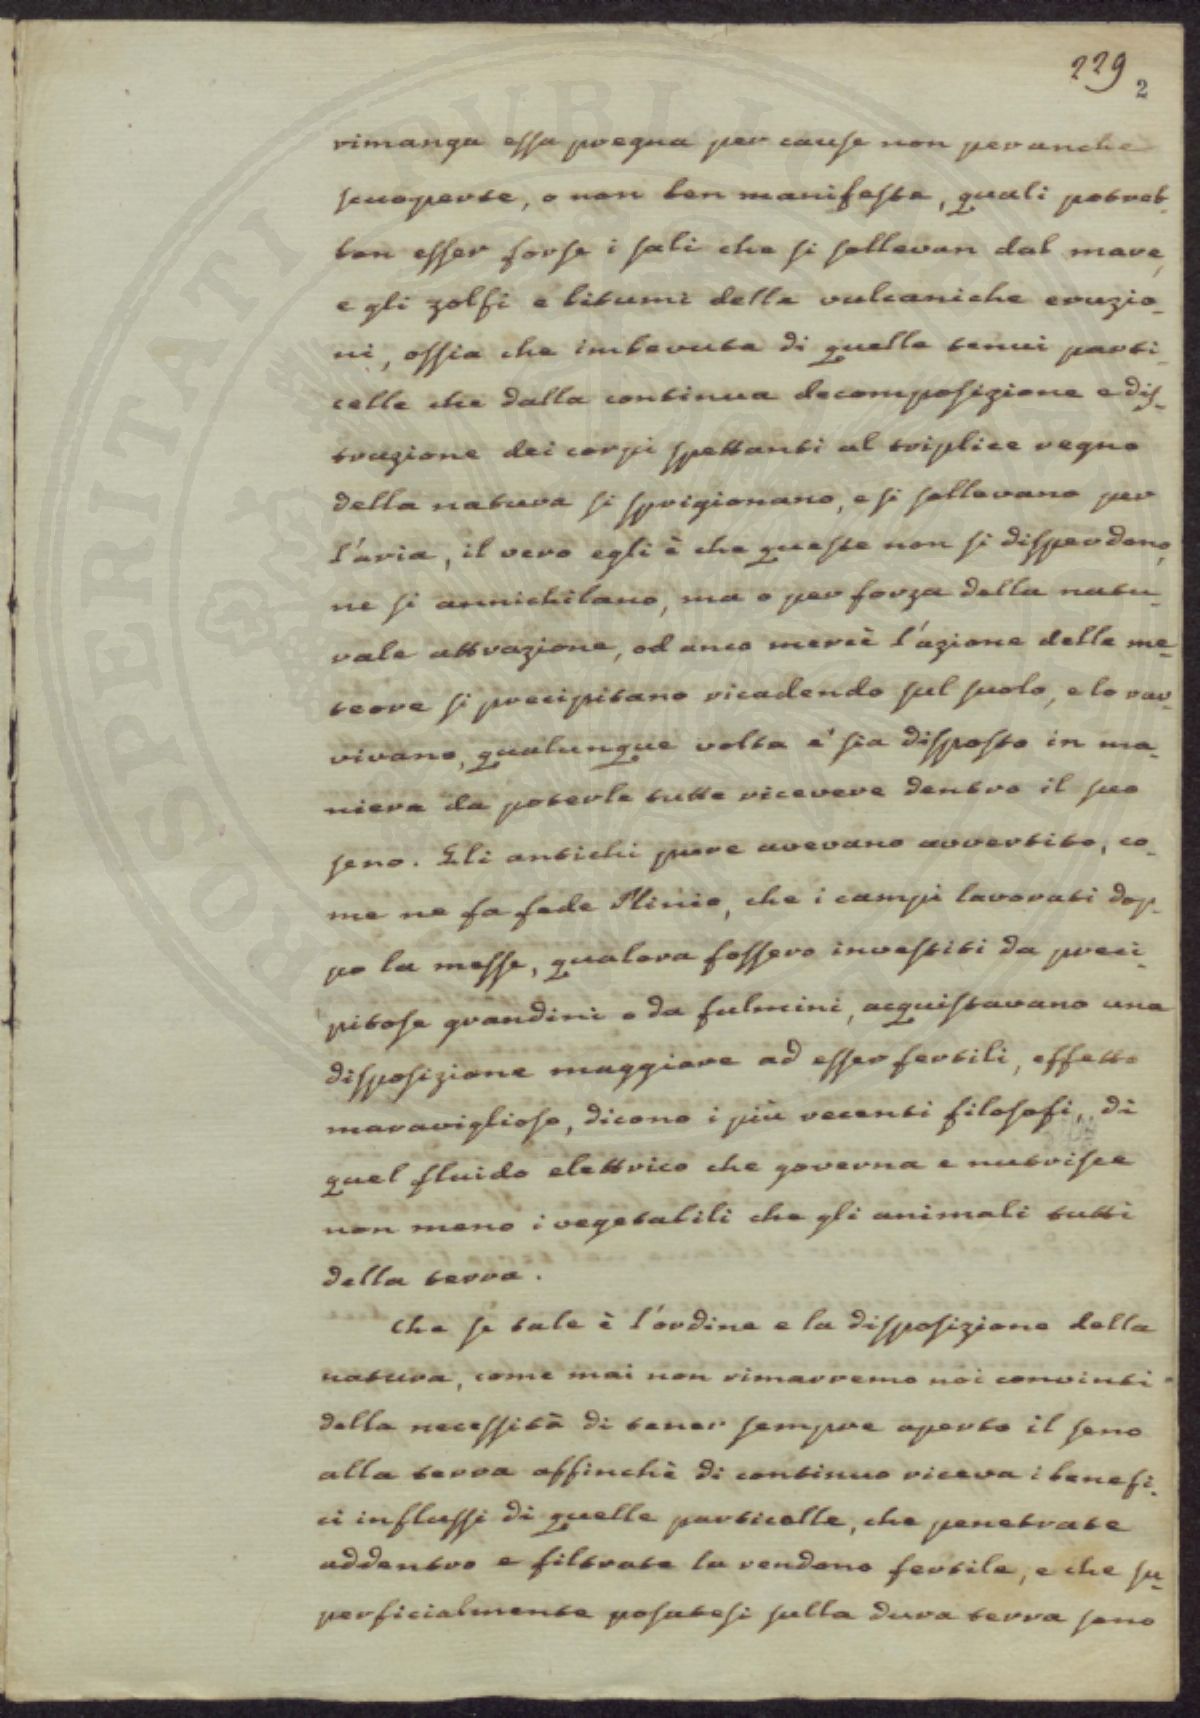 229
2
rimanga essa pregna per cause non peranche
scuoperte, o non ben manifeste, quali potreb-
ben esser forse i sali che si sollevan dal mare,
e gli zolfi e bitumi delle vulcaniche eruzio-
ni, ossia che imbevuta di quelle tenui parti-
celle che dalla continua decomposizione e dis-
truzione dei corpi spettanti al triplice regno
della natura si sprigionano, e si sollevano per
l'aria, il vero egli è che queste non si disperdono,
ne si annichilano, ma o per forza della natu-
rale attrazione, od anco mercè l'azione delle me-
teore si precipitano ricadendo sul suolo, e lo rav-
vivano, qualunque volta e' sia disposto in ma-
niera da poterle tutte ricevere dentro il suo
seno. Gli antichi pure avevano avvertito, co-
me ne fa fede Plinio, che i campi lavorati dop-
po la messe, qualora fossero investiti da preci-
pitose grandini o da fulmini, acquistavano una
disposizione maggiore ad esser fertili, effetto
maraviglioso, dicono i più recenti filosofi, di
quel fluido elettrico che governa e nutrisce
non meno i vegetabili che gli animali tutti
della terra.
Che se tale è l'ordine e la disposizione della
natura, come mai non rimarremo noi convinti
della necessità di tener sempre aperto il seno
alla terra affinchè di continuo riceva i benefi-
ci influssi di quelle particelle, che penetrate
addentro e filtrate la rendono fertile, e che su-
perficialmente posatesi sulla dura terra sono
PROSPERITATI PUBLICAE